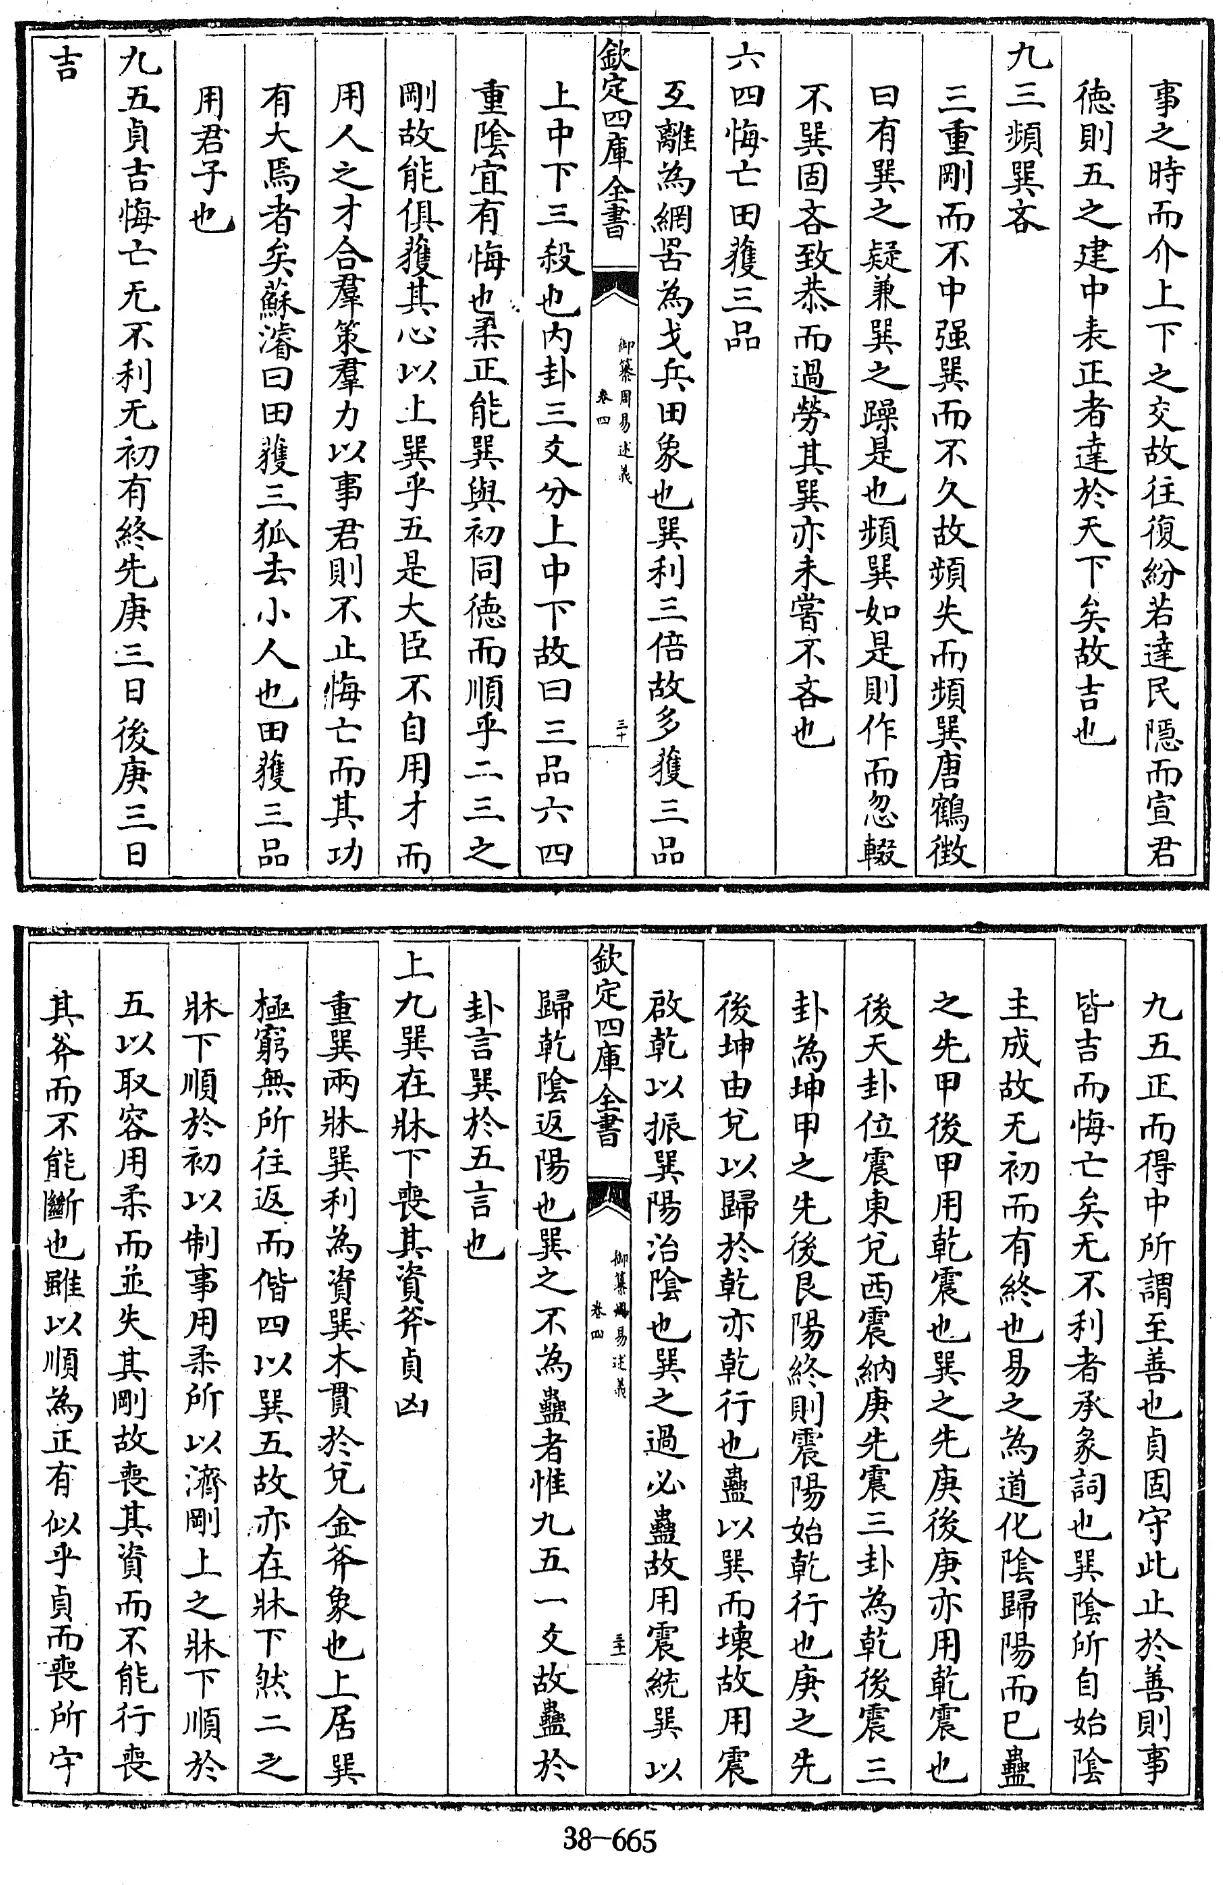 事之時而介上下之交故往復紛若達民隱而宣君
德則五之建中表正者達於天下矣故吉也
九三頻巽吝
三重剛而不中强巽而不久故頻失而頻巽唐鶴徴
曰有巽之疑兼巽之躁是也頻巽如是則作而忽輟
不巽固吝致恭而過勞其巽亦未嘗不吝也
六四悔亡田獲三品
互離為網罟為戈兵田象也巽利三倍故多獲三品
欽定四庫全書
御纂周易述義
卷四
三十
上中下三殺也内卦三爻分上中下故曰三品六四
重陰宜有悔也柔正能巽與初同德而順乎二三之
剛故能俱獲其心以上巽乎五是大臣不自用才而
用人之才合羣策羣力以事君則不止悔亡而其功
有大焉者矣蘇濬曰田獲三狐去小人也田獲三品
用君子也
九五貞吉悔亡无不利无初有終先庚三日後庚三日
吉
九五正而得中所謂至善也貞固守此止於善則事
皆吉而悔亡矣无不利者承彖詞也巽陰所自始陰
主成故无初而有終也易之為道化陰歸陽而已蠱
之先甲後甲用乾震也巽之先庚後庚亦用乾震也
後天卦位震東兌西震納庚先震三卦為乾後震三
卦為坤甲之先後艮陽終則震陽始乾行也庚之先
後坤由兌以歸於乾亦乾行也蠱以巽而壞故用震
啟乾以振巽陽治陰也巽之過必蠱故用震統巽以
欽定四庫全書
御纂周易述義
卷四
三十一
歸乾陰返陽也巽之不為蠱者惟九五一爻故蠱於
卦言巽於五言也
上九巽在牀下喪其資斧貞凶
重巽兩牀巽利為資巽木貫於兌金斧象也上居巽
極窮無所往返而偕四以巽五故亦在牀下然二之
牀下順於初以制事用柔所以濟剛上之牀下順於
五以取容用柔而並失其剛故喪其資而不能行喪
其斧而不能斷也雖以順為正有似乎貞而喪所守
38-665